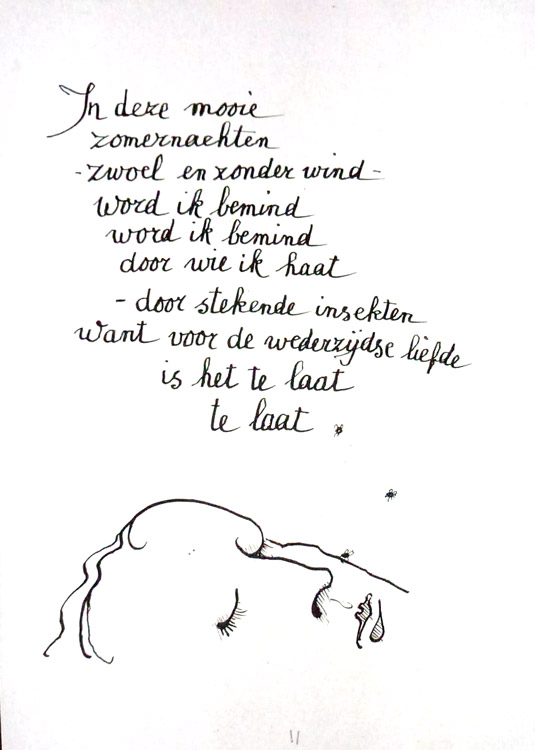 In deze mooie
zomernachten
-zwoel en zonder wind-
word ik bemind
word ik bemind
door wie ik haat
- door stekende insekten
want voor de wederzijdse liefde
is het te laat
te laat
11